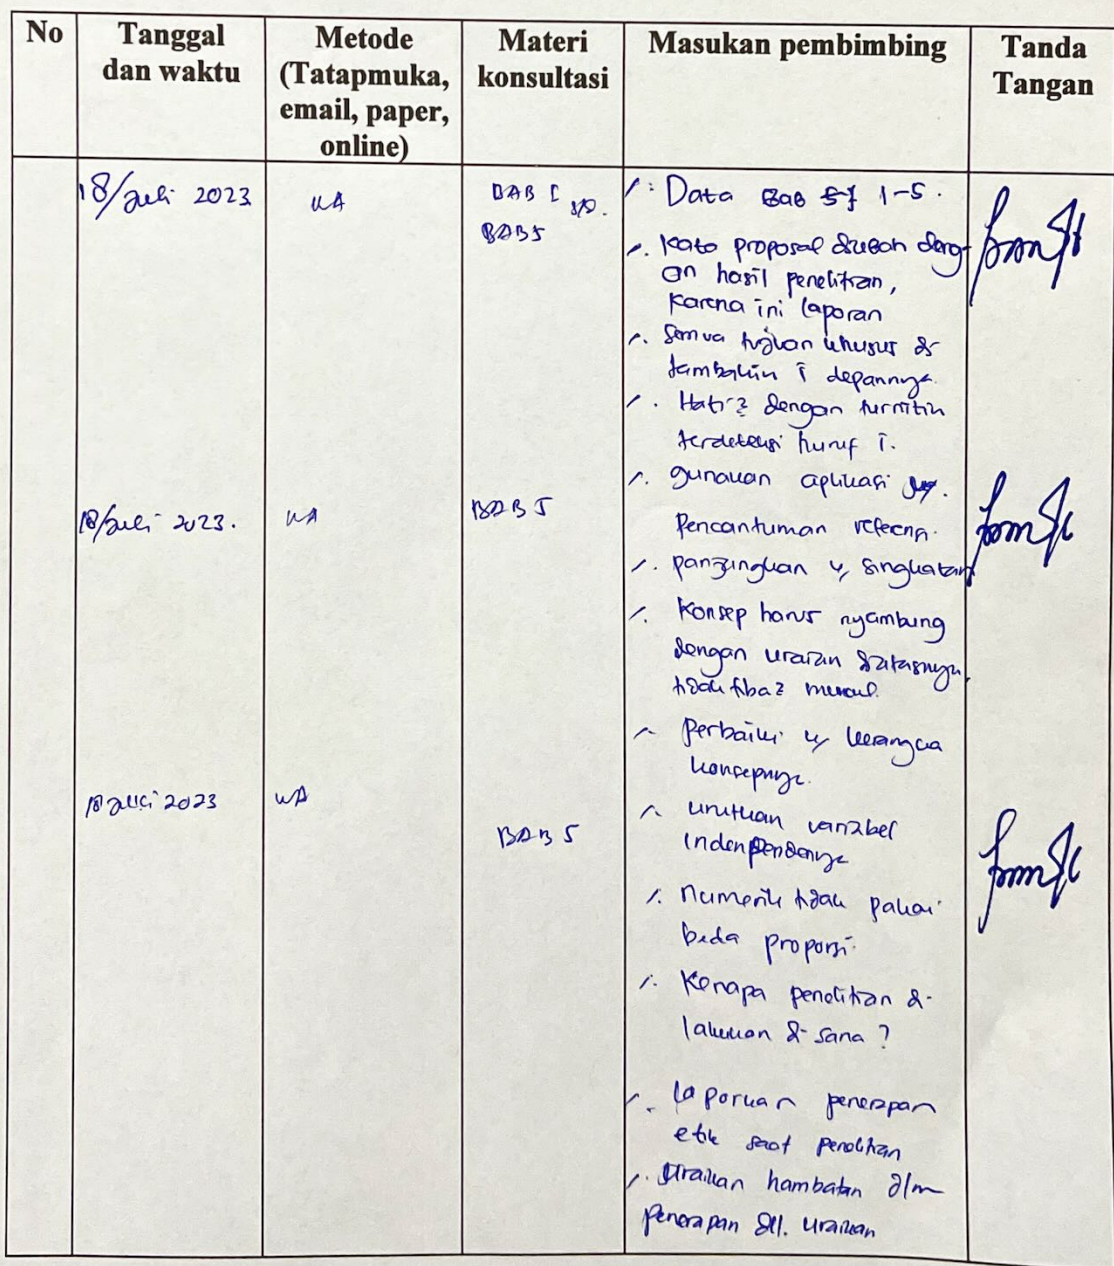 No
Tanggal
dan waktu
Metode
(Tatapmuka,
email, paper,
online)
Materi
konsultasi
Masukan pembimbing
Tanda
Tangan
18/Juli 2023
WA
BAB I s/d.
BAB 5
Data Bab 1-5.
Kata proposal diubah deng-
an hasil penelitian,
karena ini laporan
Semua tujuan khusus di
tambahin i depannya.
Hati2 dengan turnitin
terdeteksi huruf i.
gunakan aplikasi
Pencantuman
18/Juli 2023.
WA
BAB 5
panjangkan singkatan
Konsep harus nyambung
dengan uraian diatasnya,
tidak tiba2 muncul.
Perbaiki kerangka
konsepnya.
18 Juli 2023
WA
BAB 5
urutkan variabel
indenpendennya
numerik tidak pakai
beda proporsi.
Kenapa penelitian di-
lakukan di sana?
laporkan penerapan
etik saat penelitian
uraikan hambatan dlm
penerapan dll. uraikan